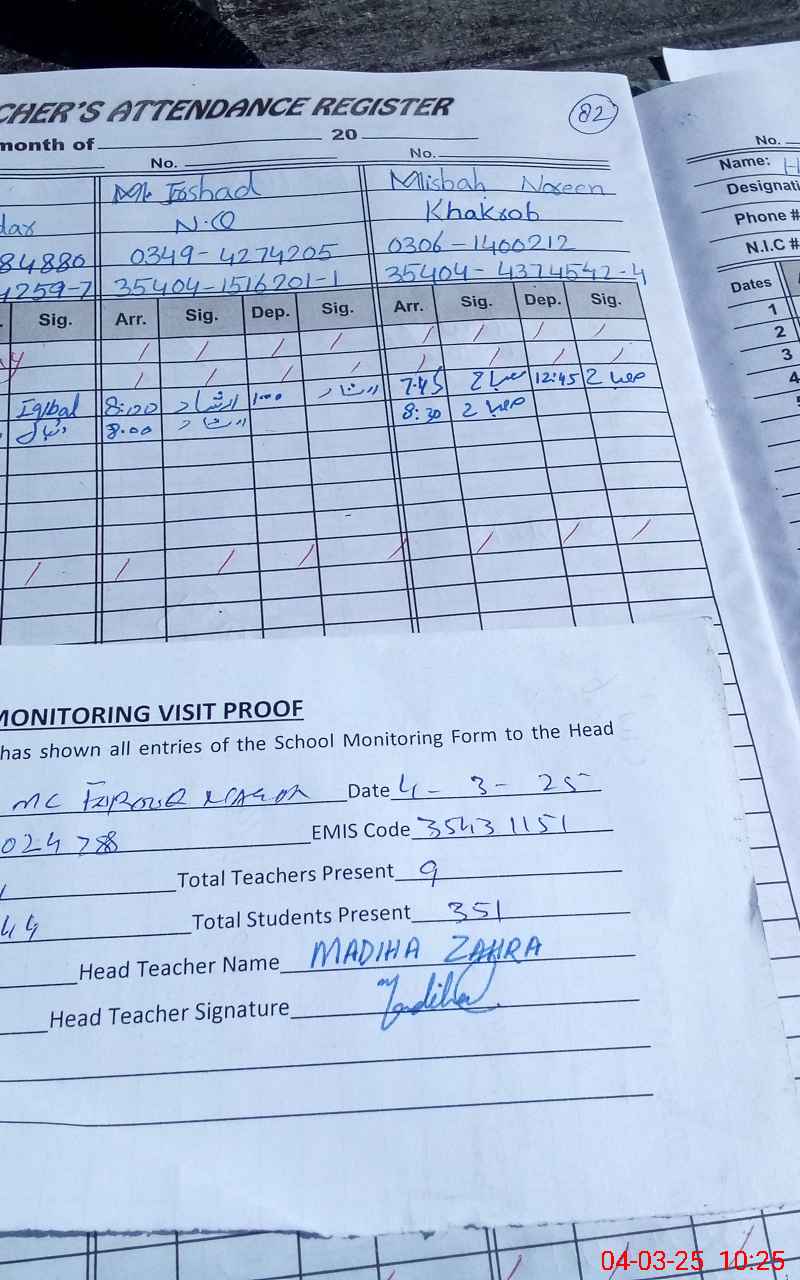 CHER'S ATTENDANCE REGISTER
82
month of 20
No. No.
Mr. Irshad Misbah Noreen
dar N.Q Khakrob
84880 0349-4274205 0306-1400212
4259-7 35404-1516201-1 35404-4374542-4
Sig. Arr. Sig. Dep. Sig. Arr. Sig. Dep. Sig.
Iqbal 8:00 ارشاد 1:00 ارشاد 7:45 مصباح 12:45 مصباح
8:00 ارشاد 8:30 مصباح
No.
Name: H
Designati
Phone #
N.I.C #
Dates
1
2
3
4
MONITORING VISIT PROOF
has shown all entries of the School Monitoring Form to the Head
MC Date 4-3-25
024788 EMIS Code 35431151
Total Teachers Present 9
44 Total Students Present 351
Head Teacher Name MADIHA ZAHRA
Head Teacher Signature Madiha
04-03-25 10:25